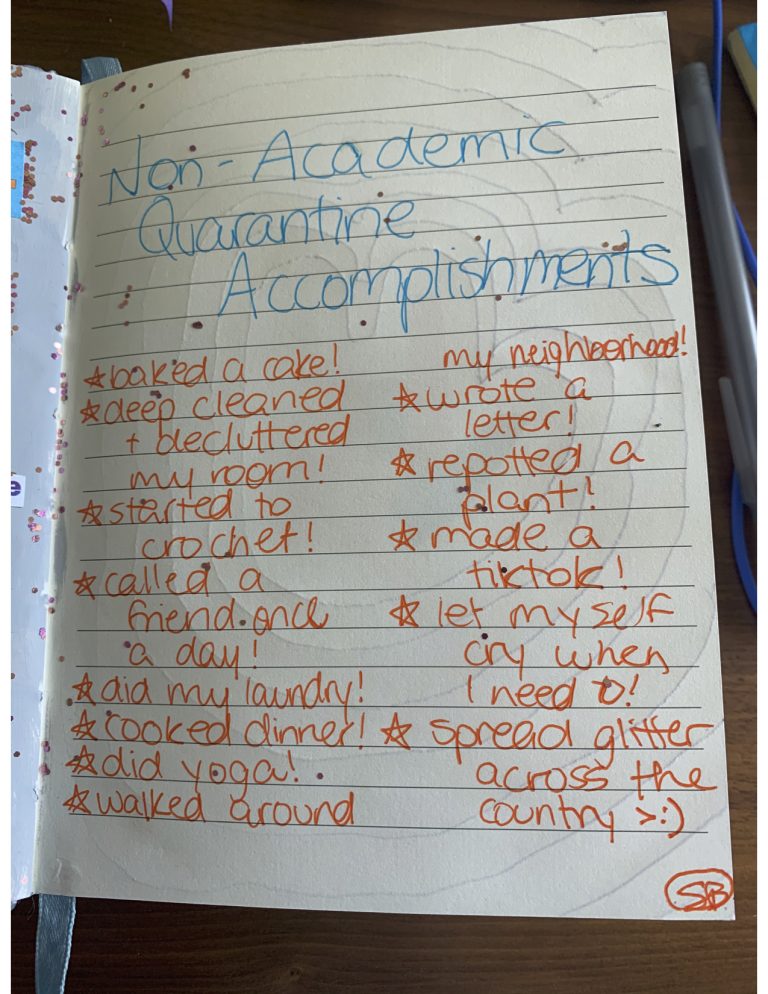 Non-Academic
Quarantine
Accomplishments
☆baked a cake!
☆deep cleaned
+ decluttered
my room!
☆started to
crochet!
☆called a
friend once
a day!
☆did my laundry!
☆cooked dinner!
☆did yoga!
☆walked around
my neighborhood!
☆wrote a
letter!
☆repotted a
plant!
☆made a
tiktok!
☆let myself
cry when
I need to!
☆spread glitter
across the
country >:)
SB
e